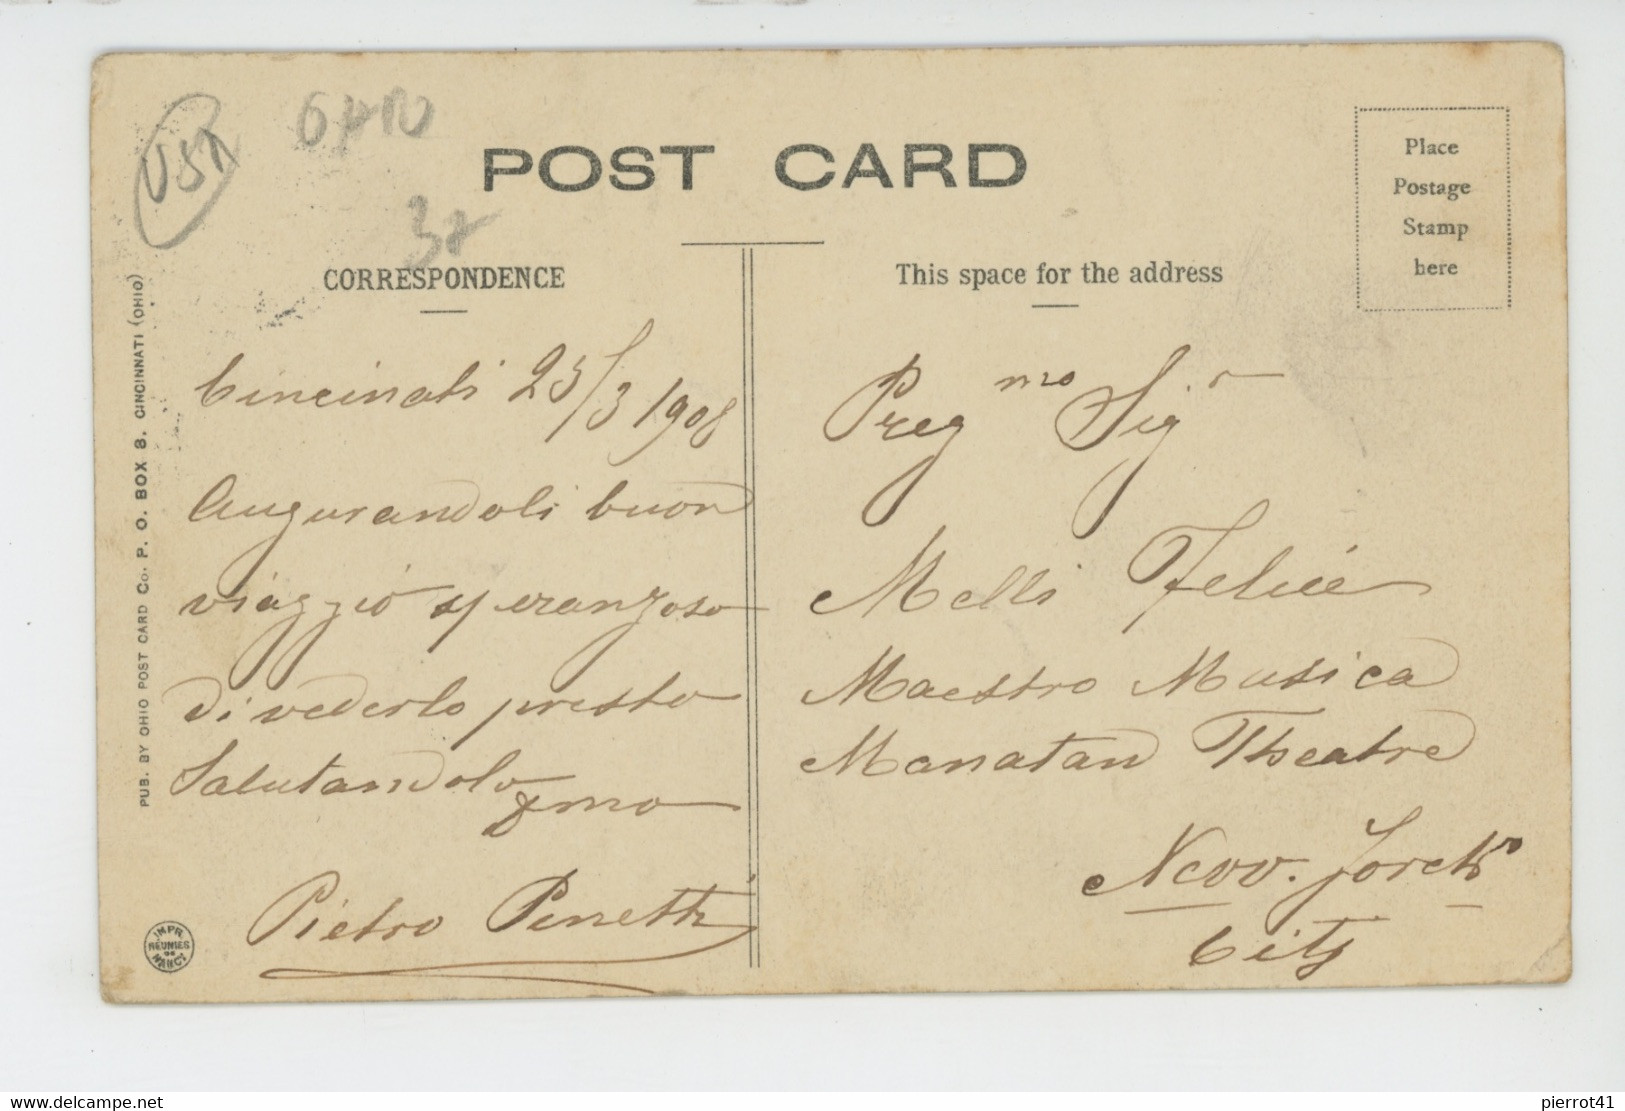 USA
OHIO
POST CARD
Place
Postage
Stamp
here
CORRESPONDENCE
This space for the address
PUB. BY OHIO POST CARD Co. P. O. BOX 8. CINCINNATI (OHIO)
Cincinati 25/3 1908
Augurandoli buon
viaggio speranzoso
di vederlo presto
Salutandolo
Pietro Penetti
Preg mo Sig r
Melli Felice
Maestro Musica
Manatan Theatre
New. Jorck
City
IMPR.
REUNIES
DE
NANCY
www.delcampe.net
pierrot41